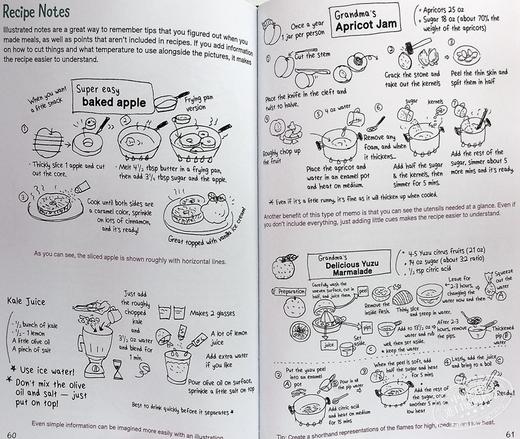 Recipe Notes
Illustrated notes are a great way to remember tips that you figured out when you
made meals, as well as points that aren't included in recipes. If you add information
on how to cut things and what temperature to use alongside the pictures, it makes
the recipe easier to understand.
When you want
a little snack
Super easy
baked apple
Frying pan
version
①
②
· Thickly slice 1 apple and cut
out the core.
· Melt 4½ tbsp butter in a frying pan,
then add 3¼ tbsp sugar and the apple.
③
Cook until both sides are
a caramel color, sprinkle
on lots of cinnamon,
and it's ready!
Great topped with vanilla ice cream!
As you can see, the sliced apple is shown roughly with horizontal lines.
Kale Juice
· ½ bunch of kale
· ½ - 1 lemon
A little olive oil
A pinch of salt
Just add
the roughly
chopped
kale
and
3½ oz water
and blend for
1 min.
Makes 2 glasses
A lot of lemon
juice
Add extra water
if you like
* Use ice water!
* Don't mix the olive
oil and salt — just
put on top!
Pour olive oil on surface,
sprinkle a little salt on top
Best to drink quickly before it separates
Even simple information can be imagined more easily with an illustration.
60
Once a year
1 jar per person
Grandma's
Apricot Jam
* Apricots 25 oz
* Sugar 18 oz (about 70% the
weight of the apricots)
①
Cut the stem
Place the knife in the cleft and
twist to halve.
②
Crack the stone and
take out the kernels
③
Peel the thin skin and
split them in half
④
Roughly chop up
the fruit
⑤
4 oz water
Place the apricot and
water in an enamel pot
and heat on medium.
⑥
Remove any
foam, and when
it thickens...
sugar
kernels
Add half the sugar
& the kernels, then
simmer for 5 mins.
⑦
Add the rest of the
sugar, simmer about 5
more mins and it's ready.
* Even if it's a little runny, it's fine as it will thicken up when cooled.
Another benefit of this type of memo is that you can see the utensils needed at a glance. Even if
you don't include everything, just adding little cues makes the recipe easier to understand.
Grandma's
Delicious Yuzu
Marmalade
* 4-5 Yuzu citrus fruits (21 oz)
* 14 oz sugar (about 32 ratio)
* ½ tsp citric acid
① Preparation
Carefully wash the
uneven surface, cut in
half, and juice them.
peel
Remove the
inside flesh.
Thinly slice
and steep in water.
Leave for
2-3 hours,
changing the
water now and
then
Squeeze
out the
water
juice
pips
Set
aside
Add to 13½ oz of
water and rub
well, then set aside.
keep the water.
After 2-3
hours, remove
the pips.
Thickened
pip
water
②
Put the yuzu peel
into an enamel
pot.
Pour in all the
pip water
Add citric acid
and heat on medium
for 15 mins.
③
When the peel is soft, add
half the sugar and heat
for 5 mins
Add the rest of
the sugar,
another 5 mins on
low heat
④ Lastly, add the juice
and bring to a boil
Ready!
Tip: Create a shorthand representations of the flames for high, medium and low heat.
61